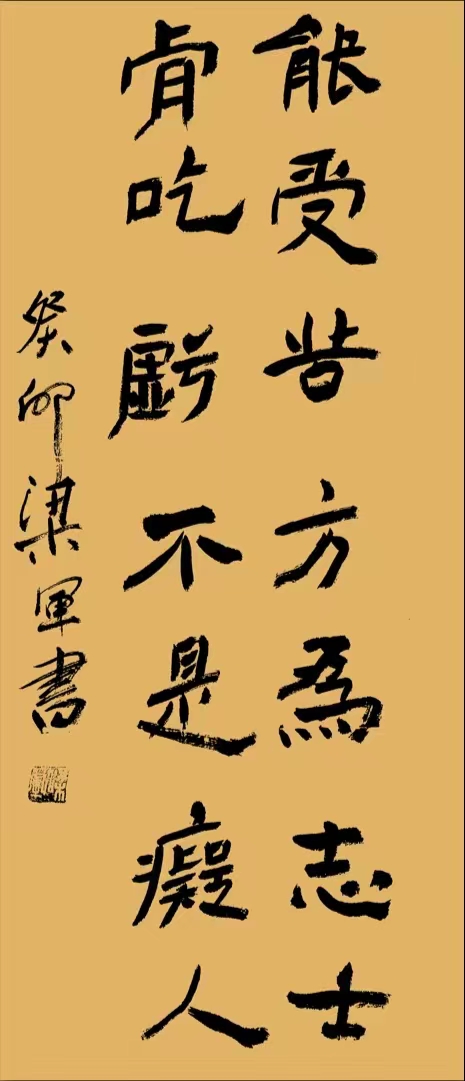 能受苦方爲志士
肯吃虧不是癡人
癸卯梁軍書